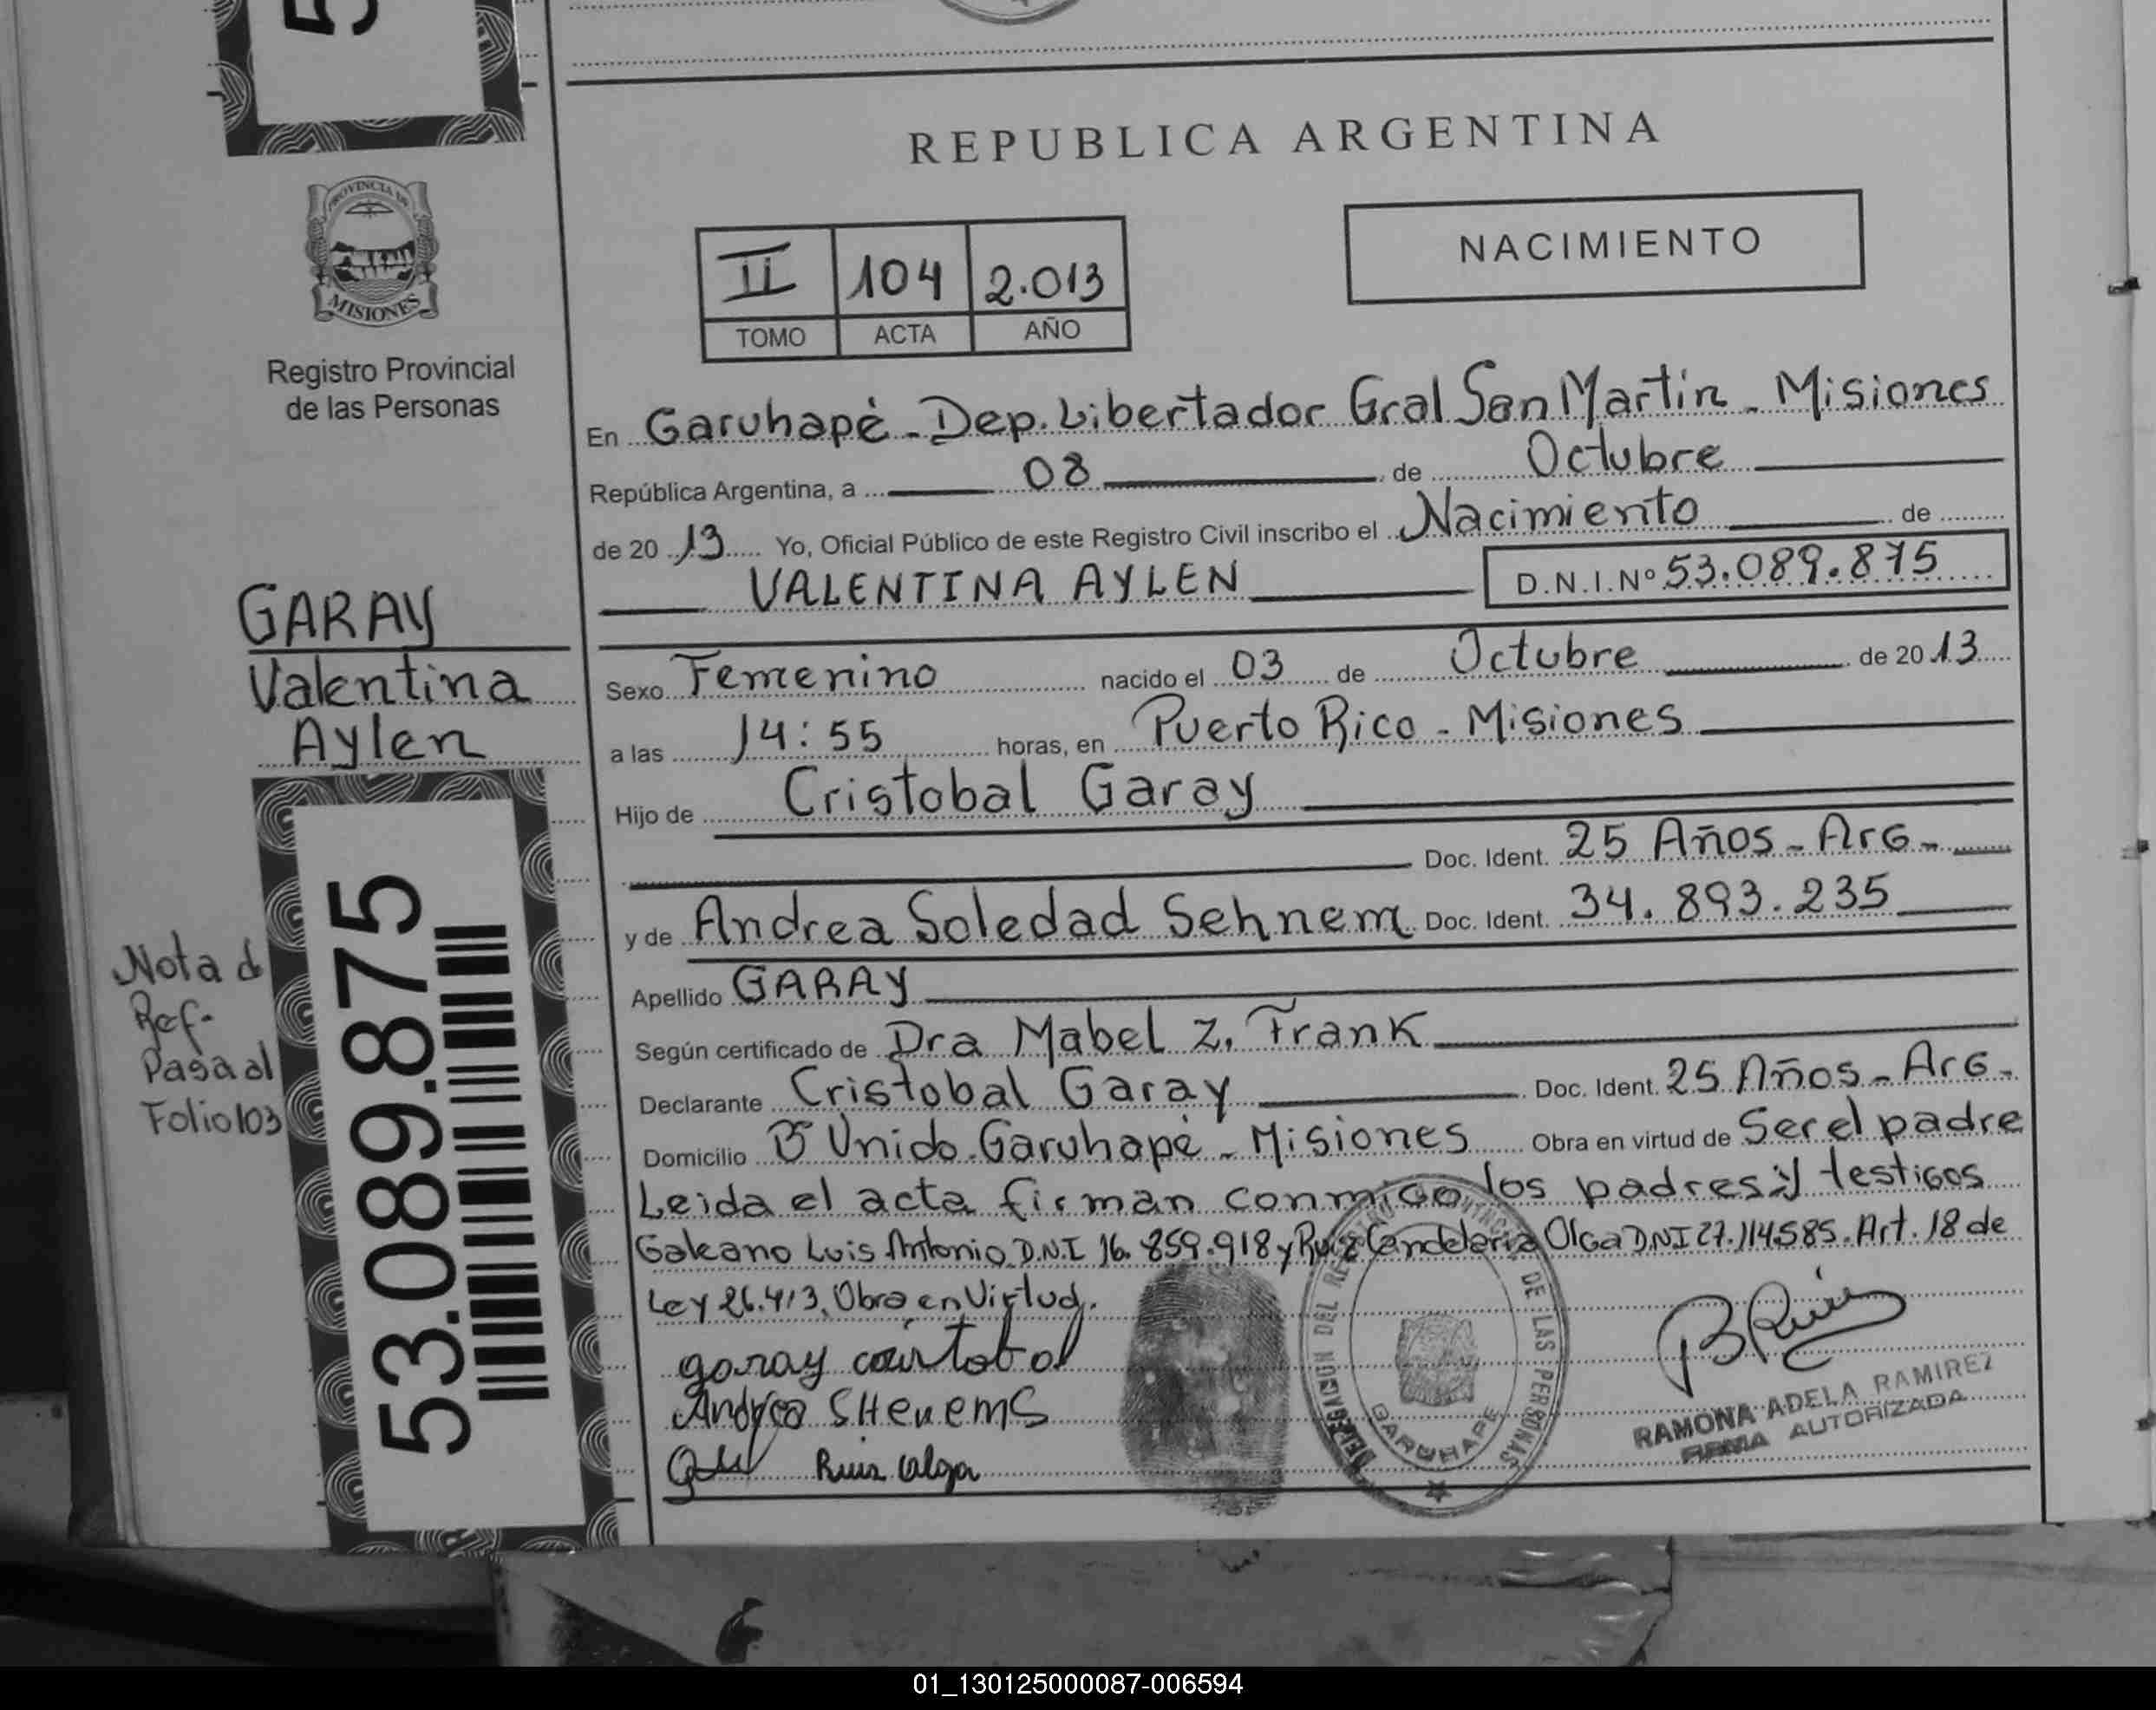 REPUBLICA ARGENTINA
PROVINCIA DE
MISIONES
Registro Provincial
de las Personas
NACIMIENTO
II 104 2.013
TOMO ACTA AÑO
En Garuhapé - Dep. Libertador Gral San Martín - Misiones
República Argentina, a 08 de Octubre
de 20 13 Yo, Oficial Público de este Registro Civil inscribo el Nacimiento de
VALENTINA AYLEN D.N.I.Nº 53.089.875
GARAY
Valentina
Aylen
Sexo Femenino nacido el 03 de Octubre de 20 13
a las 14:55 horas, en Puerto Rico - Misiones
Hijo de Cristobal Garay
Doc. Ident. 25 Años - Arg -
y de Andrea Soledad Sehnem Doc. Ident. 34.893.235
Apellido GARAY
Según certificado de Dra Mabel Z. Frank
Declarante Cristobal Garay Doc. Ident. 25 Años - Arg -
Domicilio Bº Unido - Garuhapé - Misiones Obra en virtud de Ser el padre
Leida el acta firman conmigo los padres y testigos
Galeano Luis Antonio D.N.I 16.859.918 y Ruiz Candelaria Olga DNI 27.114.585. Art. 18 de
Ley 26.413, Obra en Virtud.
garay cristobal
Andrea SHenemS
Ruiz Olga
Nota d
Ref.
Pasa al
Folio 103
53.089.875
DE LAS PERSONAS
GARUHAPE
RAMONA ADELA RAMIREZ
FIRMA AUTORIZADA
01_130125000087-006594